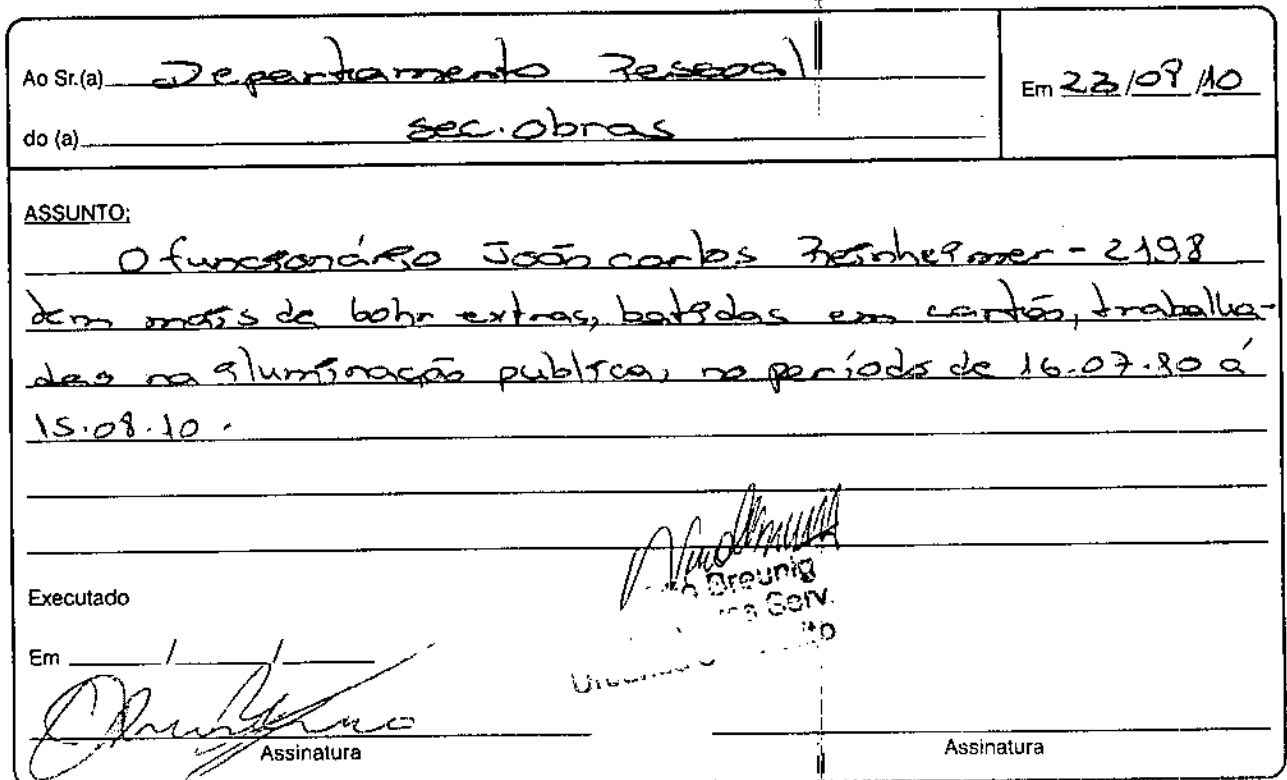 Ao Sr.(a) Departamento Pessoal
Em 23/08/10
do (a) sec. obras
ASSUNTO:
O funcionário João carlos Reinheimer - 2198
tem mais de 60hr extras, batidas em cartão, trabalha-
das na iluminação publica, no período de 16.07.10 á
15.08.10.
Breunig
Serv.
Executado
Em / /
Assinatura
Assinatura